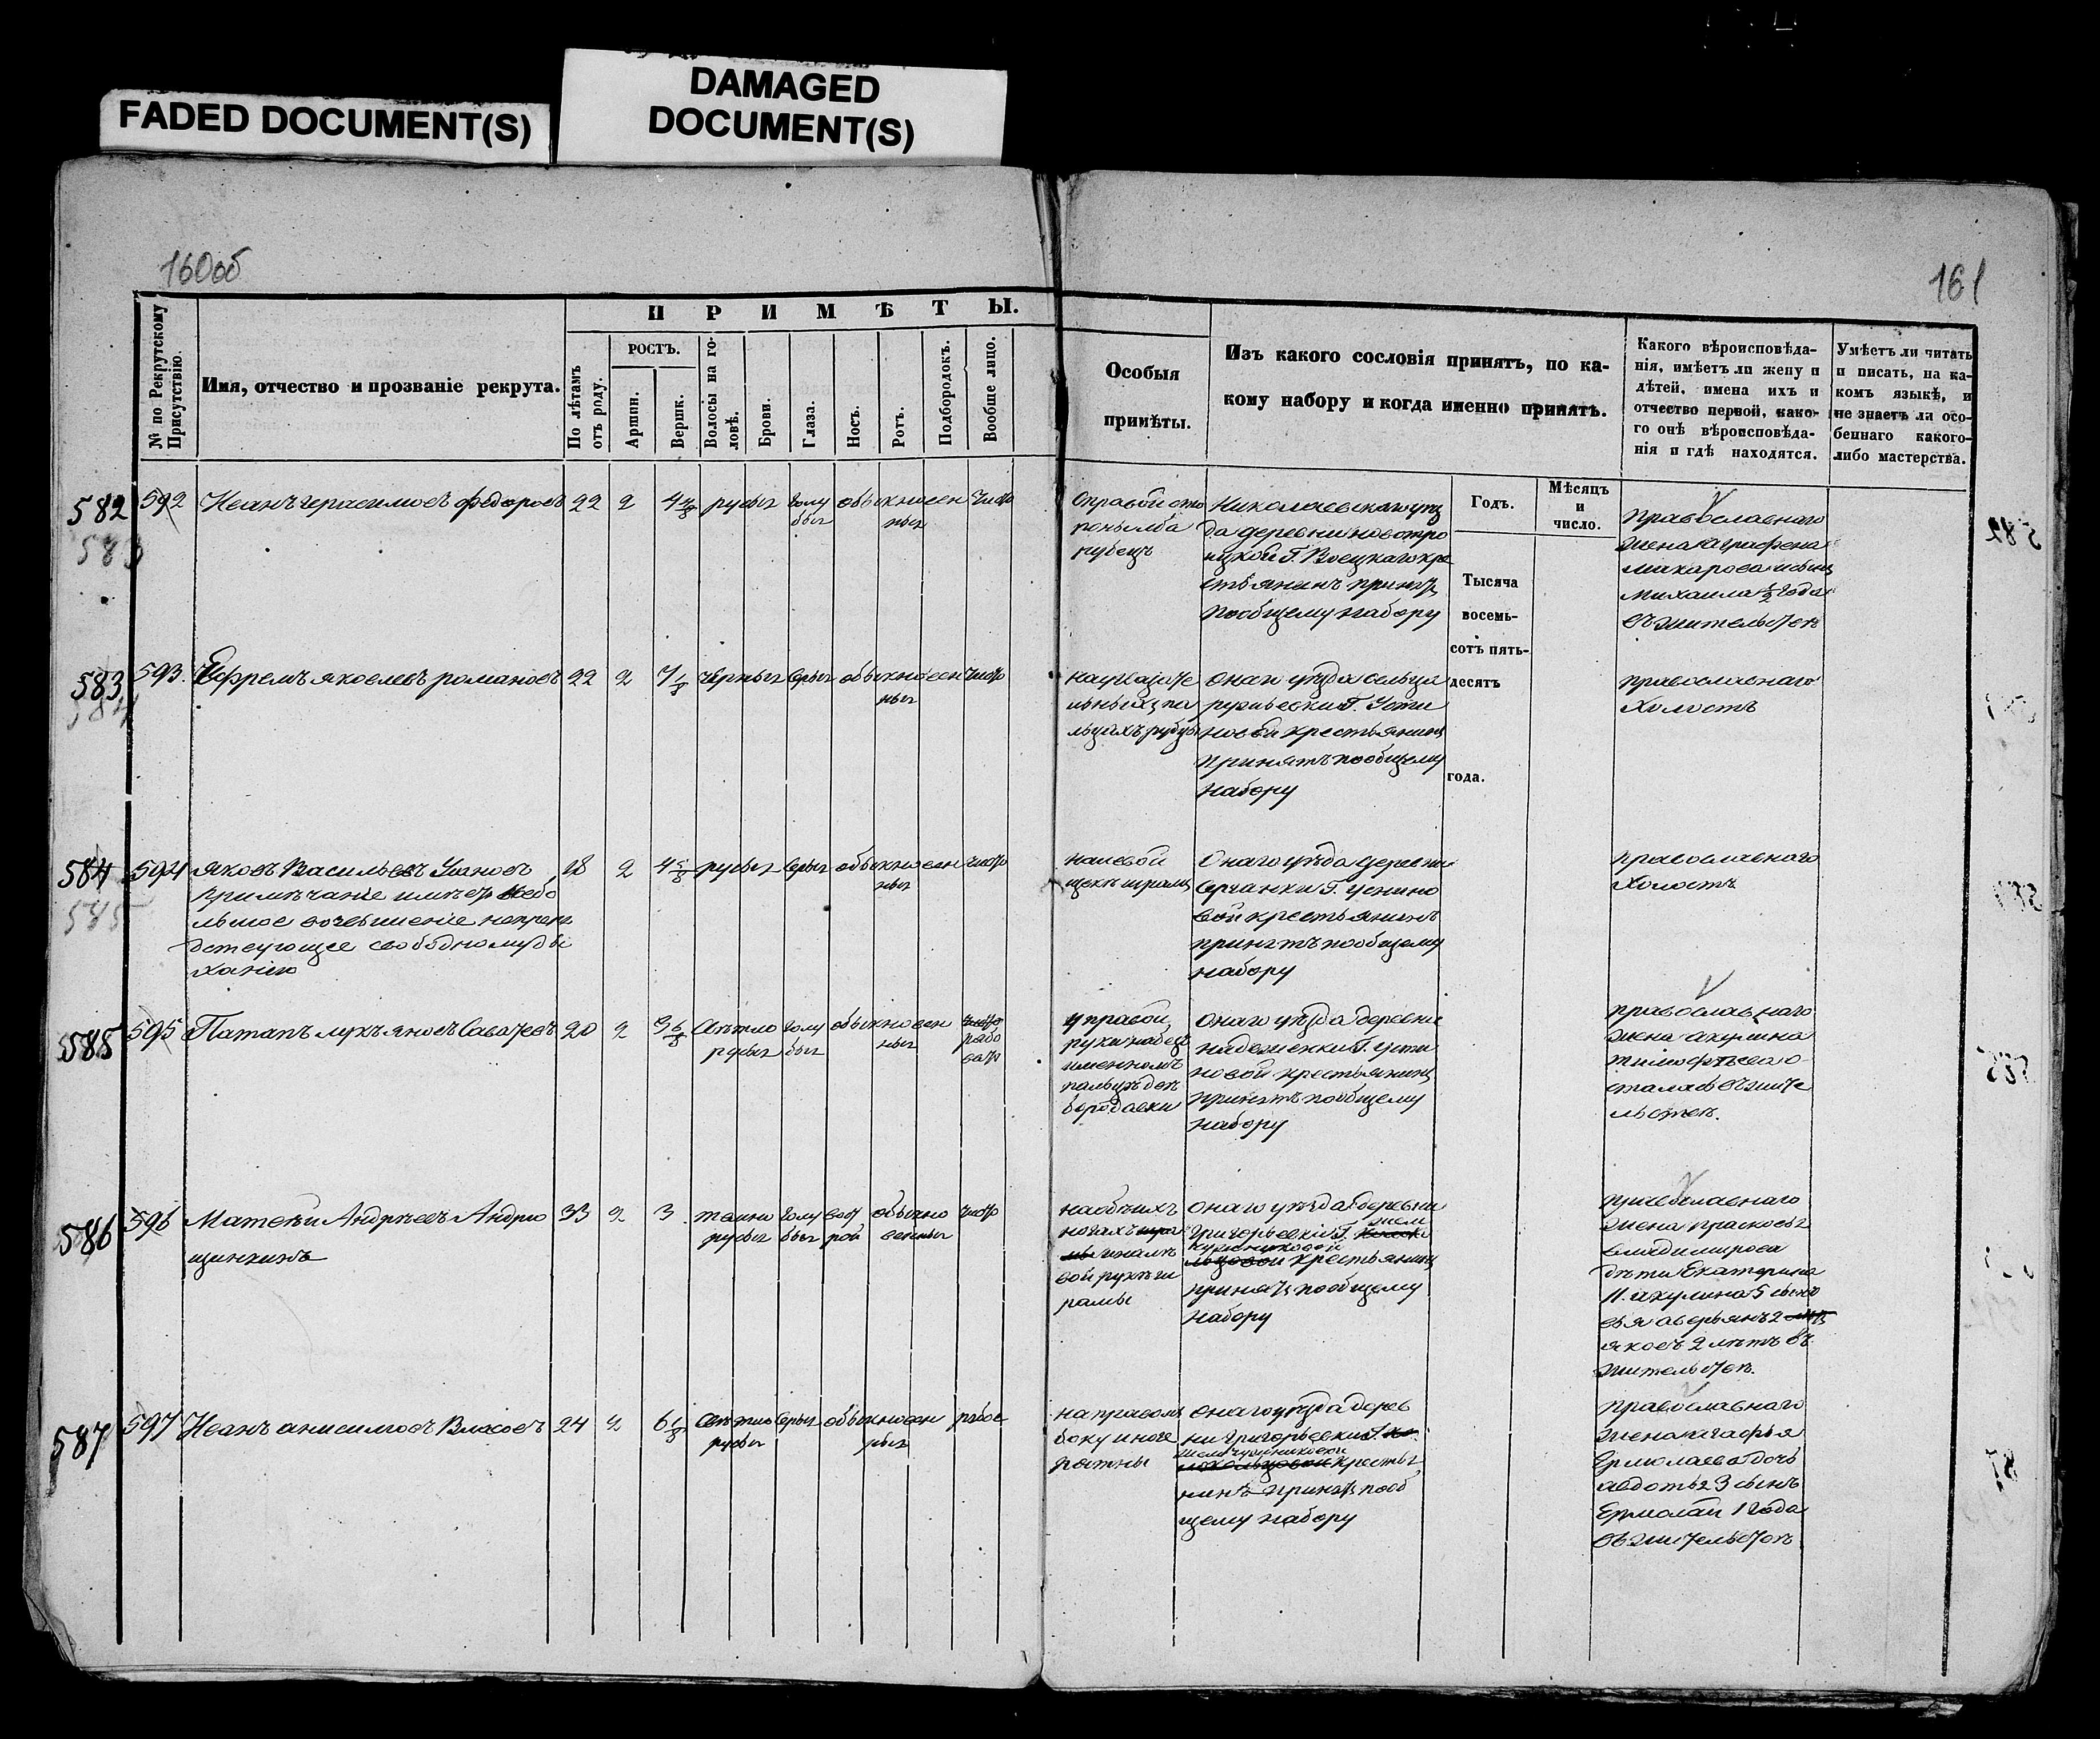 FADED DOCUMENT(S)
DAMAGED
DOCUMENT(S)
160об
161
№ по Рекрутскому Присутствію.
Имя, отчество и прозваніе рекрута.
ПРИМѢТЫ.
По лѣтамъ отъ роду.
РОСТЪ.
Аршин.
Вершк.
Волосы на головѣ.
Брови.
Глаза.
Носъ.
Ротъ.
Подбородокъ.
Вообще лицо.
Особыя
примѣты.
Изъ какого сословія принятъ, по ка-
кому набору и когда именно принятъ.
Какого вѣроисповѣда-
нія, имѣетъ ли жену и
дѣтей, имена ихъ и
отчество первой, како-
го онѣ вѣроисповѣда-
нія и гдѣ находятся.
Умѣетъ ли читать
и писать, на ка-
комъ языкѣ, и
не знаетъ ли осо-
беннаго какого-
либо мастерства.
Годъ.
Мѣсяцъ
и
число.
Тысяча
восемь-
сотъ пять-
десятъ
года.
582
583
592 Иванъ герасимовъ федоровъ 22 2 русыя голу
быя обыкновен
ныя чисто
Справой сто
роны лба
рубецъ
Николаевскаго уѣз
да деревни новотро
ицкой Г. Воецкаго кре
стьянинъ принятъ
пообщему набору
православнаго
жена аграфена
макарова сынъ
михаила ½ года
въ жительствѣ
583
584
593. Ефремъ яковлевъ романовъ 22 2 7⅛ черныя серыя обыкновен
ныя чисто
онаго уѣзда сельца
Г. Усти
новой крестьянинъ
принятъ пообщему
набору
православнаго
холостъ
584
585
594 яковъ Васильевъ 18 2 русыя серыя обыкновен
ныя чисто
примѣчаніе имѣетъ небо
льшое
свободному ды
ханію
налевой
щекѣ шрамъ
онаго уѣзда деревни
Г. устино
вой крестьянинъ
принятъ пообщему
набору
православнаго
холостъ
585
595 Патапъ лукъяновъ Савачевъ 20 2 3 6/8 светло
русыя голу
быя обыкновен
ныя рябо
вато
управой
руки набезъ
именномъ
пальцѣ двѣ
бородавки
онаго уѣзда деревни
надеженки Г. усти
новой крестьянинъ
принятъ пообщему
набору
православнаго
жена акулина
тимофѣева о
сталась въ жите
льствѣ.
586
596 Матвѣй Андрѣевъ Андрю
щинкинъ 33 2 3 темно
русыя голу
быя вост
рой обыкно
венныя чисто
наобѣихъ
ногахъ
иналѣ
вой рукѣ ш
рамы
онаго уѣзда деревни
Григорьевки Г.
крестьянинъ
принятъ пообщему
набору
православнаго
жена прасковья
владимирова
дѣти Екатерина
11. акулина 5 сыно
вья аверьянъ 2
яковъ 2 лѣтъ въ
жительствѣ.
587
597 Иванъ анисимовъ Власовъ 24 2 6⅛ светло
русыя серыя обыкновен
ныя рябов
направомъ
боку иноге
пятны
онаго уѣзда дерев
ни григорьевки Г.
крестья
нинъ принятъ пооб
щему набору
православнаго
жена агафья
Ермолаева дочь
авдотья 3 сынъ
Ермолай 1 года
въ жительствѣ